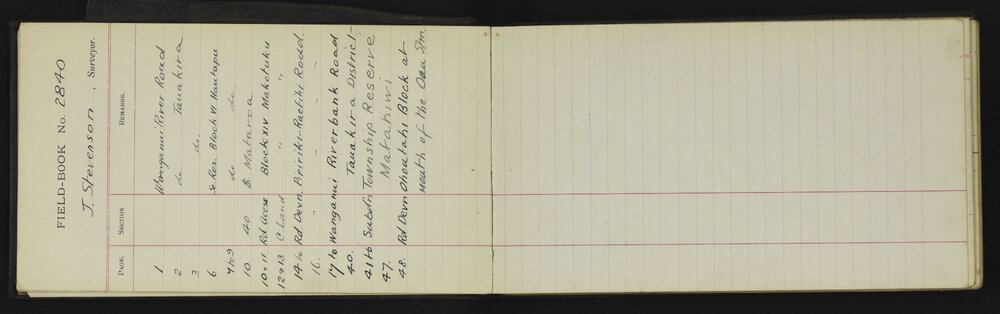 FIELD-BOOK No. 2840
J. Stevenson, Surveyor.
PAGE. SECTION REMARKS.
1 Wanganui River Road
2 do Tauakira
3 do.
6 Sc. Res. Block VI Hautapu
7 to 9 do do.
10 40 Mataroa
10 & 11 Rd Access Block XIV Makotuku
12 & 13 C. Land " "
14 to Rd Devn. Pipiriki-Raetihi Road.
16. " " "
17 to Wanganui Riverbank Road
40. Tauakira District-
41 to Subdn Township Reserve
47. Matahiwi
48. Rd Devn Ohoutahi Block at
mouth of the Oau Stm.